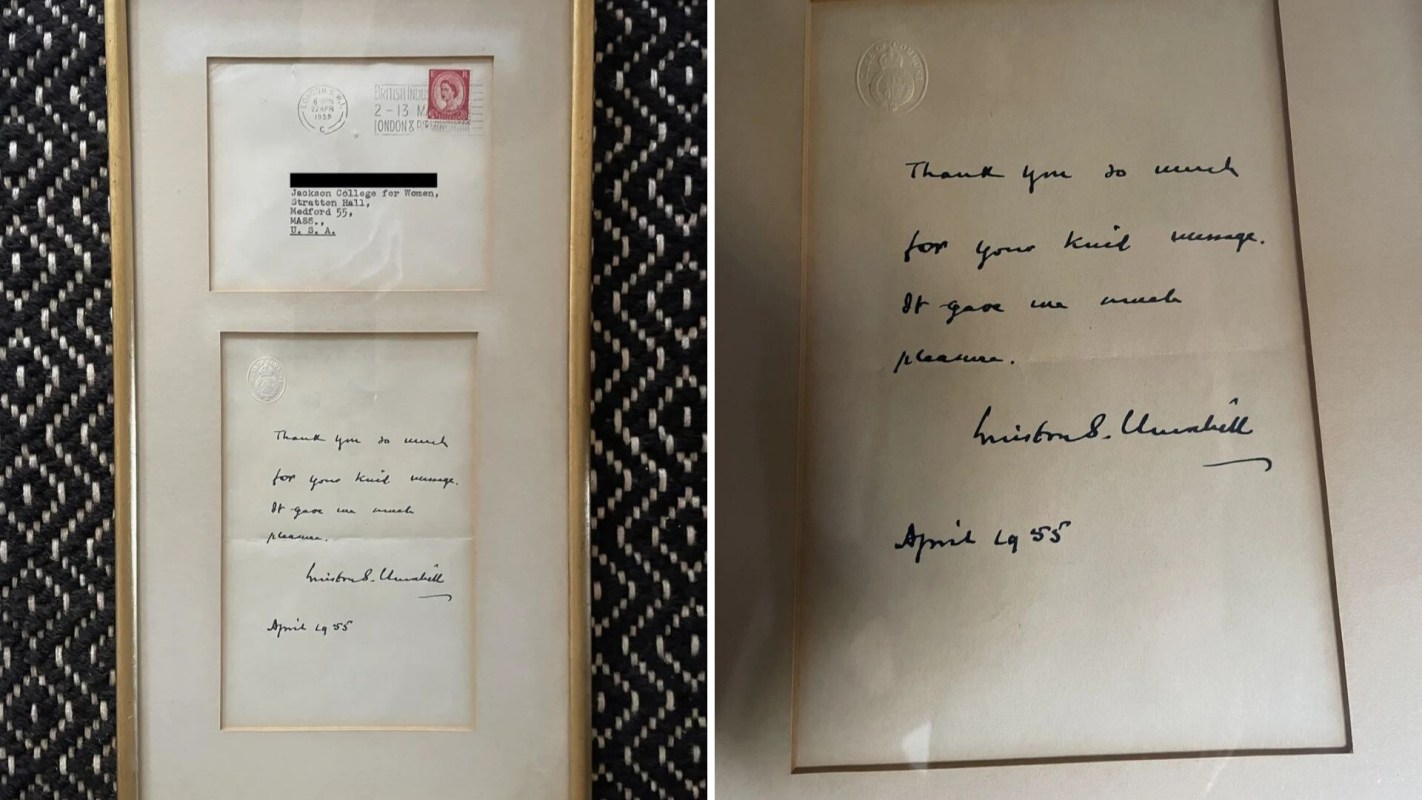 LONDON S.W.1.
6 15 PM
22 APR
1955
C
BRITISH INDU
2-13 M
LONDON & B
Jackson College for Women,
Stratton Hall,
Medford 55,
MASS.,
U. S. A.
Thank you so much
for your kind message.
It gave me much
pleasure.
Winston S. Churchill
April 1955
HOUSE OF COMMONS
Thank you so much
for your kind message.
It gave me much
pleasure.
Winston S. Churchill
April 1955